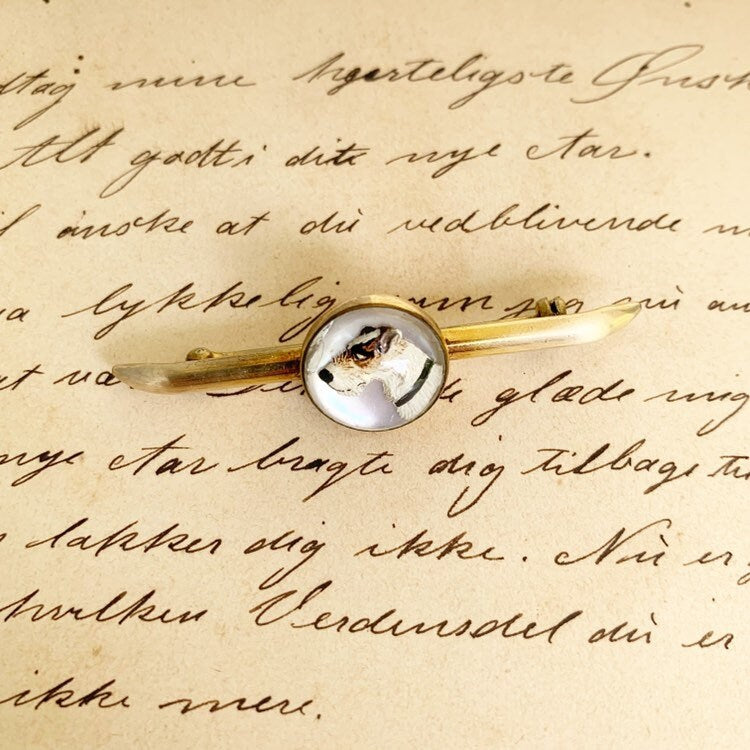 dtag mine hjerteligste Ønsk
Alt godt i dit nye Aar.
ønske at du vedblivende
lykkelig som jeg
glæde mig
nye Aar bragte dig tilbage
lakker dig ikke. Nu er
hvilken Verdensdel du er
ikke mere.